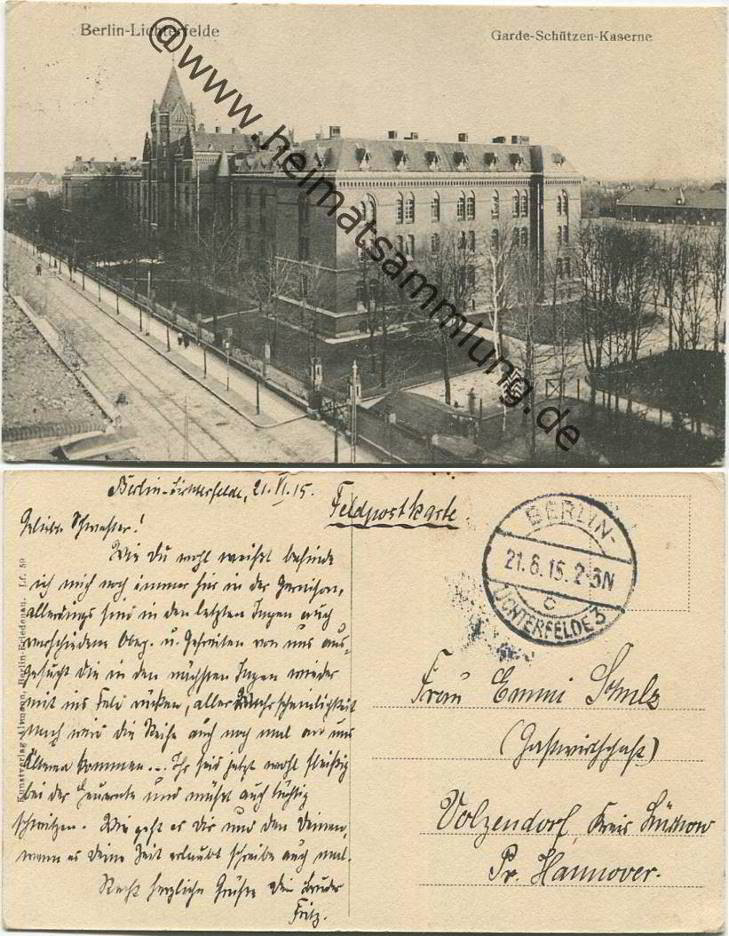 Berlin-Lichterfelde
Garde-Schützen-Kaserne
www.heimatsammlung.de
Berlin-Lichterfelde, 21.VI.15.
Feldpostkarte
Liebe Schwester!
Wie Du wohl weißt befinde
ich mich noch immer hier in der Garnison,
allerdings sind in den letzten Tagen auch
verschiedene Oberj. u. Gefreiten von uns aus-
gesucht die in den nächsten Tagen wieder
mit ins Feld rücken, aller Wahrscheinlichkeit
nach wird die Reihe auch noch mal an uns
Ältere kommen... Ihr seid jetzt wohl fleißig
bei der Heuernte und müßt auch tüchtig
schwitzen. Wie geht es Dir und den Deinen,
wenn es Deine Zeit erlaubt schreibe auch mal.
Recht herzliche Grüße Dein Bruder
Fritz.
Kunstverlag Altmann, Berlin-Friedenau. Lf. 50
BERLIN-
21.6.15. 2-3N
c
LICHTERFELDE 3
Frau Emmi Schulz
(Gastwirtschaft)
Volzendorf, Kreis Lüchow
Pr. Hannover.